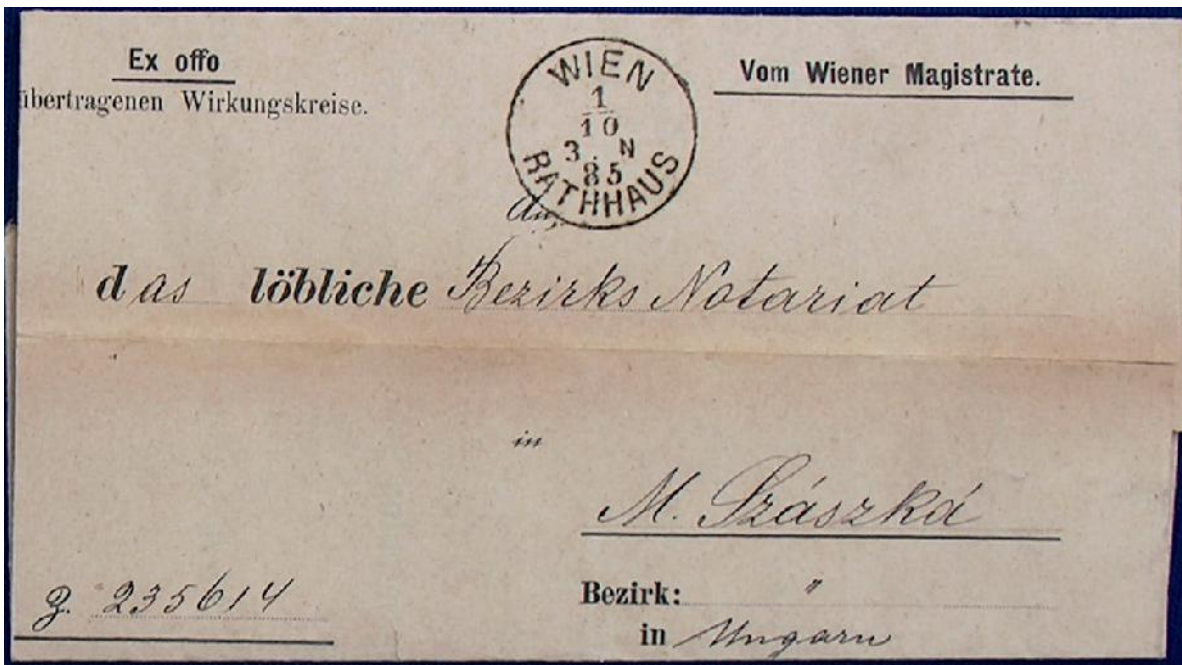 Ex offo
übertragenen Wirkungskreise.
WIEN
1
10
3 N
85
RATHHAUS
Vom Wiener Magistrate.
An
das löbliche Bezirks Notariat
in
M. Szászká
Z. 235614
Bezirk: "
in Ungarn